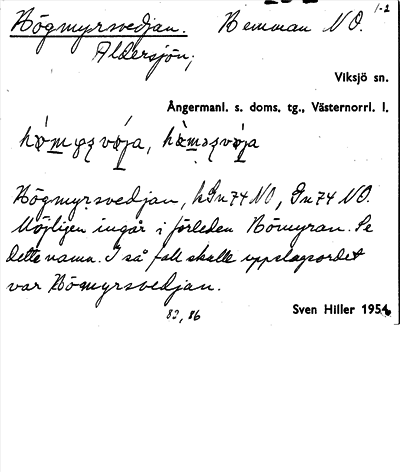 1-2
Högmyrsvedjan. Hemman NO.
Aldersjön;
Viksjö sn.
Ångermanl. s. doms. tg., Västernorrl. l.
Högmyrsvedjan, hSn74NO, Sn74 NO.
Möjligen ingår i förleden Hömyran. Se
detta namn. I så fall skulle uppslagsordet
var Hömyrsvedjan.
82, 86
Sven Hiller 1954